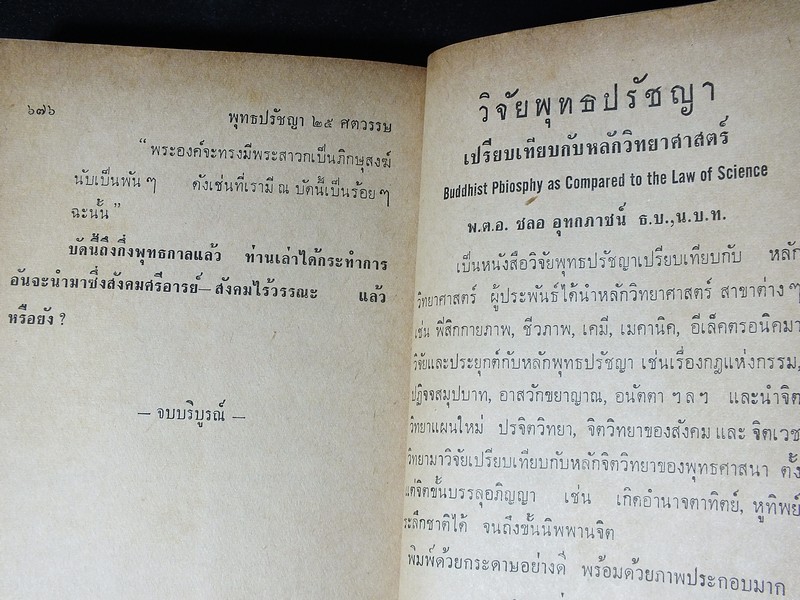 ๖๗๖
พุทธปรัชญา ๒๕ ศตวรรษ
“ พระองค์จะทรงมีพระสาวกเป็นภิกษุสงฆ์
นับเป็นพัน ๆ ดังเช่นที่เรามี ณ บัดนี้เป็นร้อย ๆ
ฉะนั้น ”
บัดนี้ถึงกึ่งพุทธกาลแล้ว ท่านเล่าได้กระทำการ
อันจะนำมาซึ่งสังคมศรีอารย์—สังคมไร้วรรณะ แล้ว
หรือยัง ?
— จบบริบูรณ์ —
วิจัยพุทธปรัชญา
เปรียบเทียบกับหลักวิทยาศาสตร์
Buddhist Pbiosphy as Compared to the Law of Science
พ.ต.อ. ชลอ อุทกภาชน์ ธ.บ.,น.บ.ท.
เป็นหนังสือวิจัยพุทธปรัชญาเปรียบเทียบกับ หลัก
วิทยาศาสตร์ ผู้ประพันธ์ได้นำหลักวิทยาศาสตร์ สาขาต่าง ๆ
เช่น ฟิสิกกายภาพ, ชีวภาพ, เคมี, เมคานิค, อีเล็คตรอนิคมา
วิจัยและประยุกต์กับหลักพุทธปรัชญา เช่นเรื่องกฎแห่งกรรม,
ปฏิจจสมุปบาท, อาสวักขยาญาณ, อนัตตา ฯลฯ และนำจิต
วิทยาแผนใหม่ ปรจิตวิทยา, จิตวิทยาของสังคม และ จิตเวช
วิทยามาวิจัยเปรียบเทียบกับหลักจิตวิทยาของพุทธศาสนา ตั้ง
แต่จิตขั้นบรรลุอภิญญา เช่น เกิดอำนาจตาทิตย์, หูทิพย์
ระลึกชาติได้ จนถึงขั้นนิพพานจิต
พิมพ์ด้วยกระดาษอย่างดี พร้อมด้วยภาพประกอบมาก